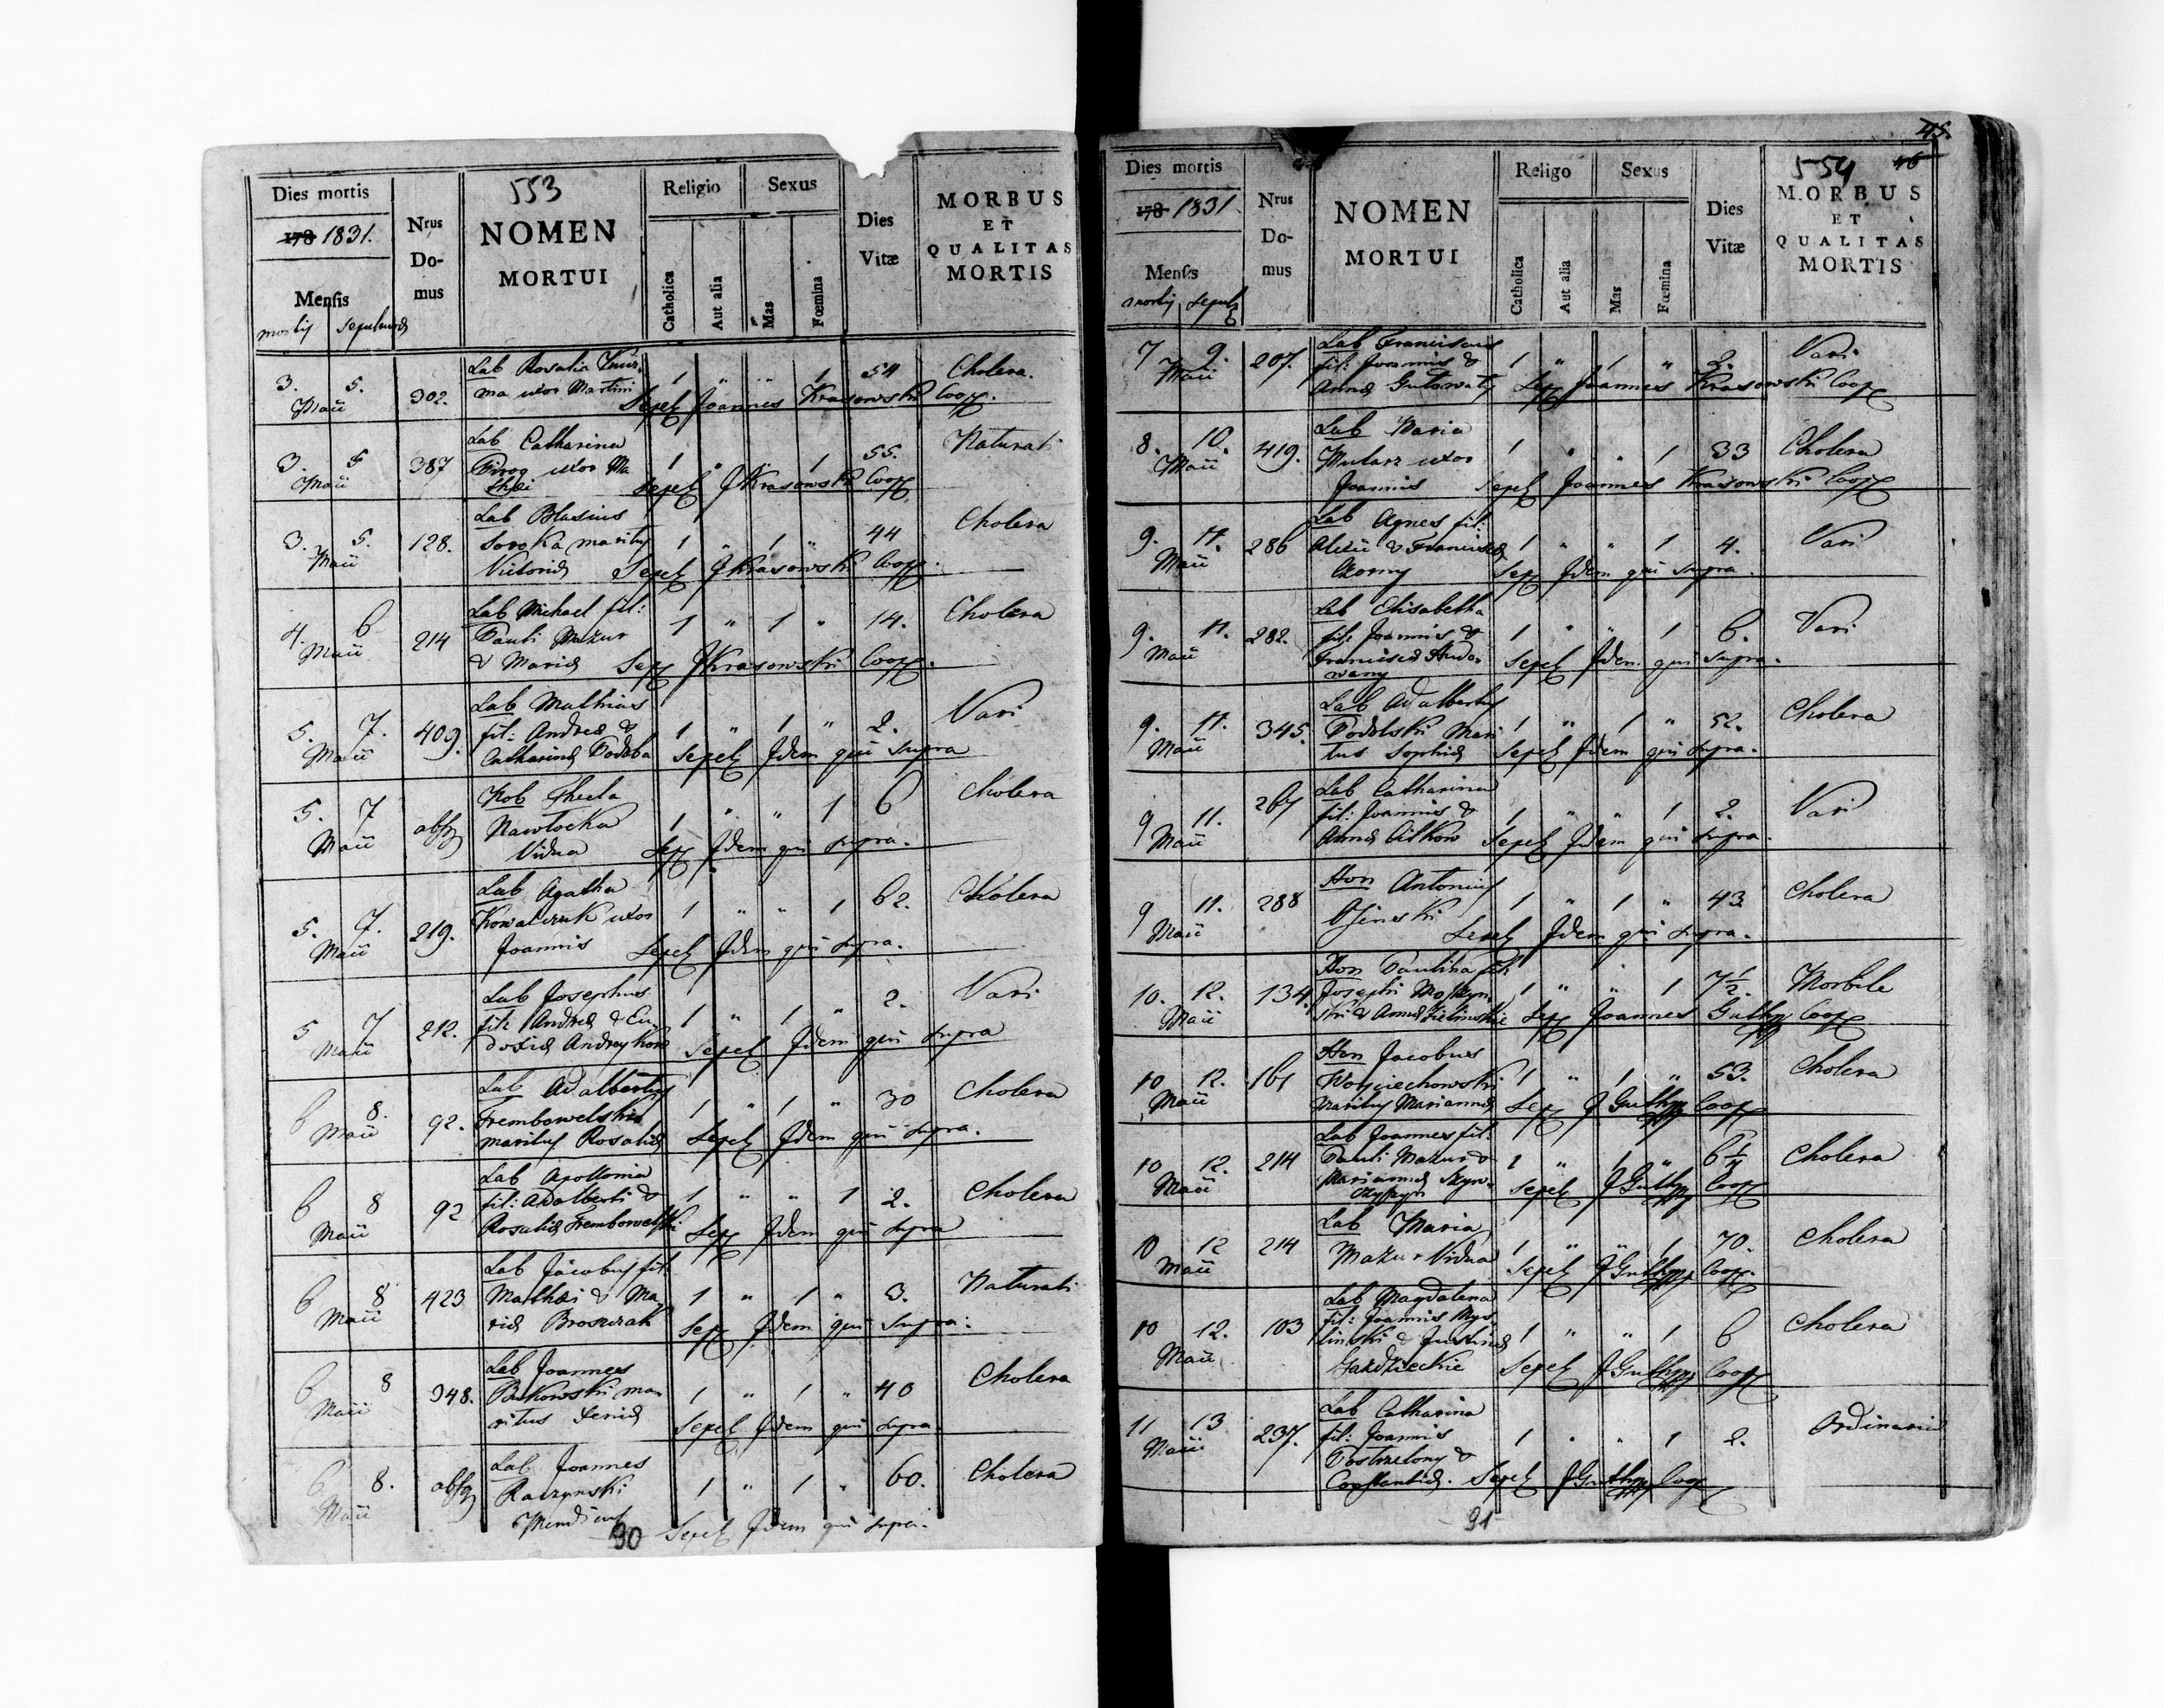 553
Dies mortis
178 1831.
Mensis
mortis sepulturæ
Nrus
Do-
mus
NOMEN
MORTUI
Religio
Catholica
Aut alia
Sexus
Mas
Fœmina
Dies
Vitæ
MORBUS
ET
QUALITAS
MORTIS
Lab Rosalia
3. 5. 302. ma uxor Martini 1 " " 1 54 Cholera.
Maii Sepel Joannes Krasowski Coop.
Lab Catharina
3. 5 387 Pirog uxor Ma 1 " " 1 55. Naturali
Maii thæi Sepel J Krasowski Coop
Lab Blasius
3. 5. 128. Soroka maritus 1 " 1 " 44 Cholera
Maii Victoriæ Sepel J Krasowski Coop.
Lab Michael fil:
4. 6 214 Pauli Mazur 1 " 1 " 14. Cholera
Maii & Mariæ Sep J Krasowski Coop.
Lab Mathias
5. 7. 409. fil: Andreæ & 1 " 1 " 2. Vari
Maii Catharinæ Sepel Idem qui Supra
Thecla
5. 7 Nawlocka 1 " " 1 6 Cholera
Maii Vidua Sep Idem qui supra.
Lab Agatha
5. 7. 219. Kowalczuk uxor 1 " " 1 62. Cholera
Maii Joannis Sepel Idem qui supra.
Lab Josephus
5 7 212. fil: Andreæ & Eu 1 " 1 " 2. Vari
Maii doxiæ Andreykow Sepel Idem qui supra
Lab Adalbertus
6 8. 92. Trembowelski 1 " 1 " 30 Cholera
Maii maritus Rosaliæ Sepel Idem qui supra.
Lab Apollonia
6 8 92 fil: Adalberti & 1 " " 1 2. Cholera
Maii Rosaliæ Trembowelski Sep Idem qui supra
Lab Jacobus fil
6 8 423 Mathæi & Ma 1 " 1 " 3. Naturali
Maii riæ Broszczak Sep Idem qui Supra.
Lab Joannes
6 8 348. Bukowski ma 1 " 1 " 40 Cholera
Maii ritus Xeniæ Sepel Idem qui supra.
Lab Joannes
6 8. Raczynski 1 " 1 " 60. Cholera
Maii Mendicus Sepel Idem qui supra.
90
45.
554 46
Dies mortis
178 1831
Mensis
mortis sepult
Nrus
Do-
mus
NOMEN
MORTUI
Religo
Catholica
Aut alia
Sexus
Mas
Fœmina
Dies
Vitæ
MORBUS
ET
QUALITAS
MORTIS
Lab Franciscus
7 9. 207. fil: Joannis & 1 " 1 " 2. Vari
Maii Annæ Sep Joannes Krasowski Coop
Lab Maria
8. 10. 419. Mularz uxor 1 " " 1 33 Cholera
Maii Joannis Sepel Joannes Krasowski Coop
Lab Agnes fil:
9. 11. 286 Alexii & Franciscæ 1 " " 1 4. Vari
Maii Sep Idem qui supra.
Lab Elisabetha
9. 11. 282. fil: Joannis & 1 " " 1 6. Vari
Maii Franciscæ Sepel Idem qui supra.
wany
Lab Adalbertus
9. 11. 345. Podolski Mari 1 " 1 " 52. Cholera
Maii tus Sophiæ Sepel Idem qui supra.
Lab Catharina
9 11. 267 fil: Joannis & 1 " " 1 2. Vari
Maii Annæ Sepel Idem qui supra.
Hon Antonius
9 11. 288 1 " 1 " 43 Cholera
Maii Sepel Idem qui supra.
Hon Paulina fil:
10. 12. 134. Josephi 1 " " 1 7 1/2. Morbile
Maii ski & Annæ Zielinskie Sep Joannes Guthy Coop
Hon Jacobus
10 12. 161 Woyciechowski 1 " 1 " 53. Cholera
Maii Maritus Mariannæ Sep J Guthy Coop
Lab Joannes fil:
10 12. 214 Pauli Mazur & 1 " 1 " 6 1/4 Cholera
Maii Mariannæ Sepel J Guthy Coop
Lab Maria
10 12 214 Mazur Vidua 1 " " 1 70. Cholera
Maii Sepel J Guthy Coop.
Lab Magdalena
10 12. 103 fil: Joannis Mys 1 " " 1 6 Cholera
linski & Justinæ
Maii Sepel J Guthy Coop
Lab Catharina
11 13 237. fil: Joannis 1 " " 1 2. Ordinaria
Maii Postrzelony &
Constantiæ. Sepel J Guthy Coop
91